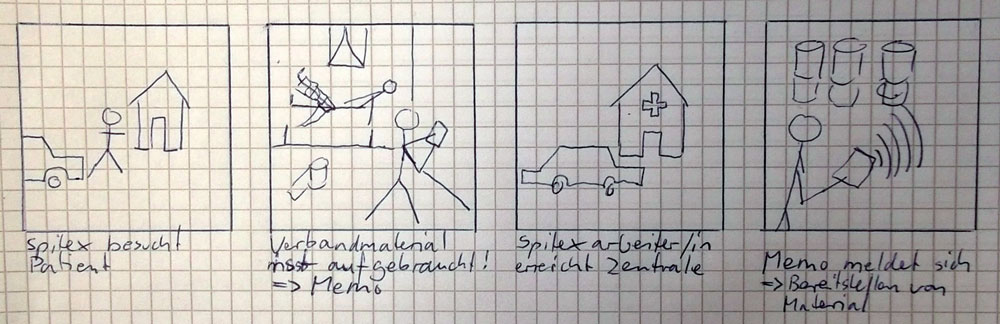 Spitex besucht
Patient
Verbandmaterial
ist aufgebraucht!
=> Memo
Spitexarbeiter/in
erreicht Zentrale
Memo meldet sich
=> Bereitstellen von
Material